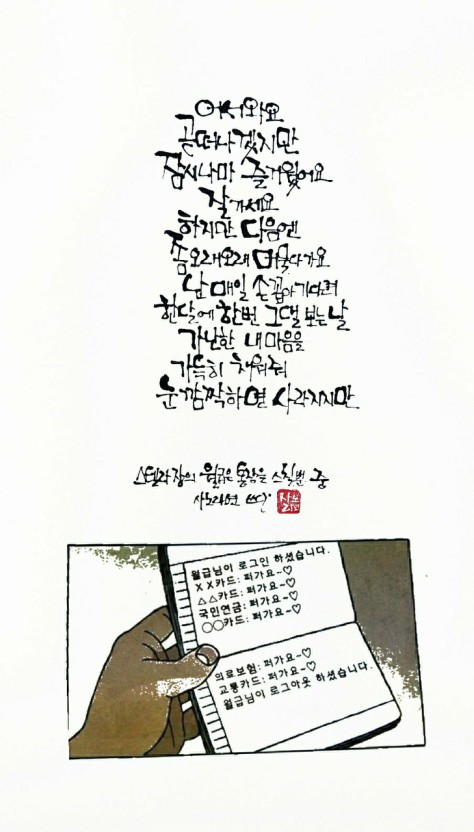 어서와요
곧 떠나겠지만
잠시나마 즐거웠어요
잘 가세요
하지만 다음엔
좀 오래오래 머물다가요
난 매일 손꼽아 기다려
한달에 한번 그댈 보는 날
가난한 내마음을
가득히 채워줘
눈 깜짝하면 사라지지만
스텔라장의 월급은 통장을 스칠뿐 중
월급님이 로그인 하셨습니다.
XX카드: 퍼가요~♡
△△카드: 퍼가요~♡
국민연금: 퍼가요~♡
○○카드: 퍼가요~♡
의료보험: 퍼가요~♡
교통카드: 퍼가요~♡
월급님이 로그아웃 하셨습니다.